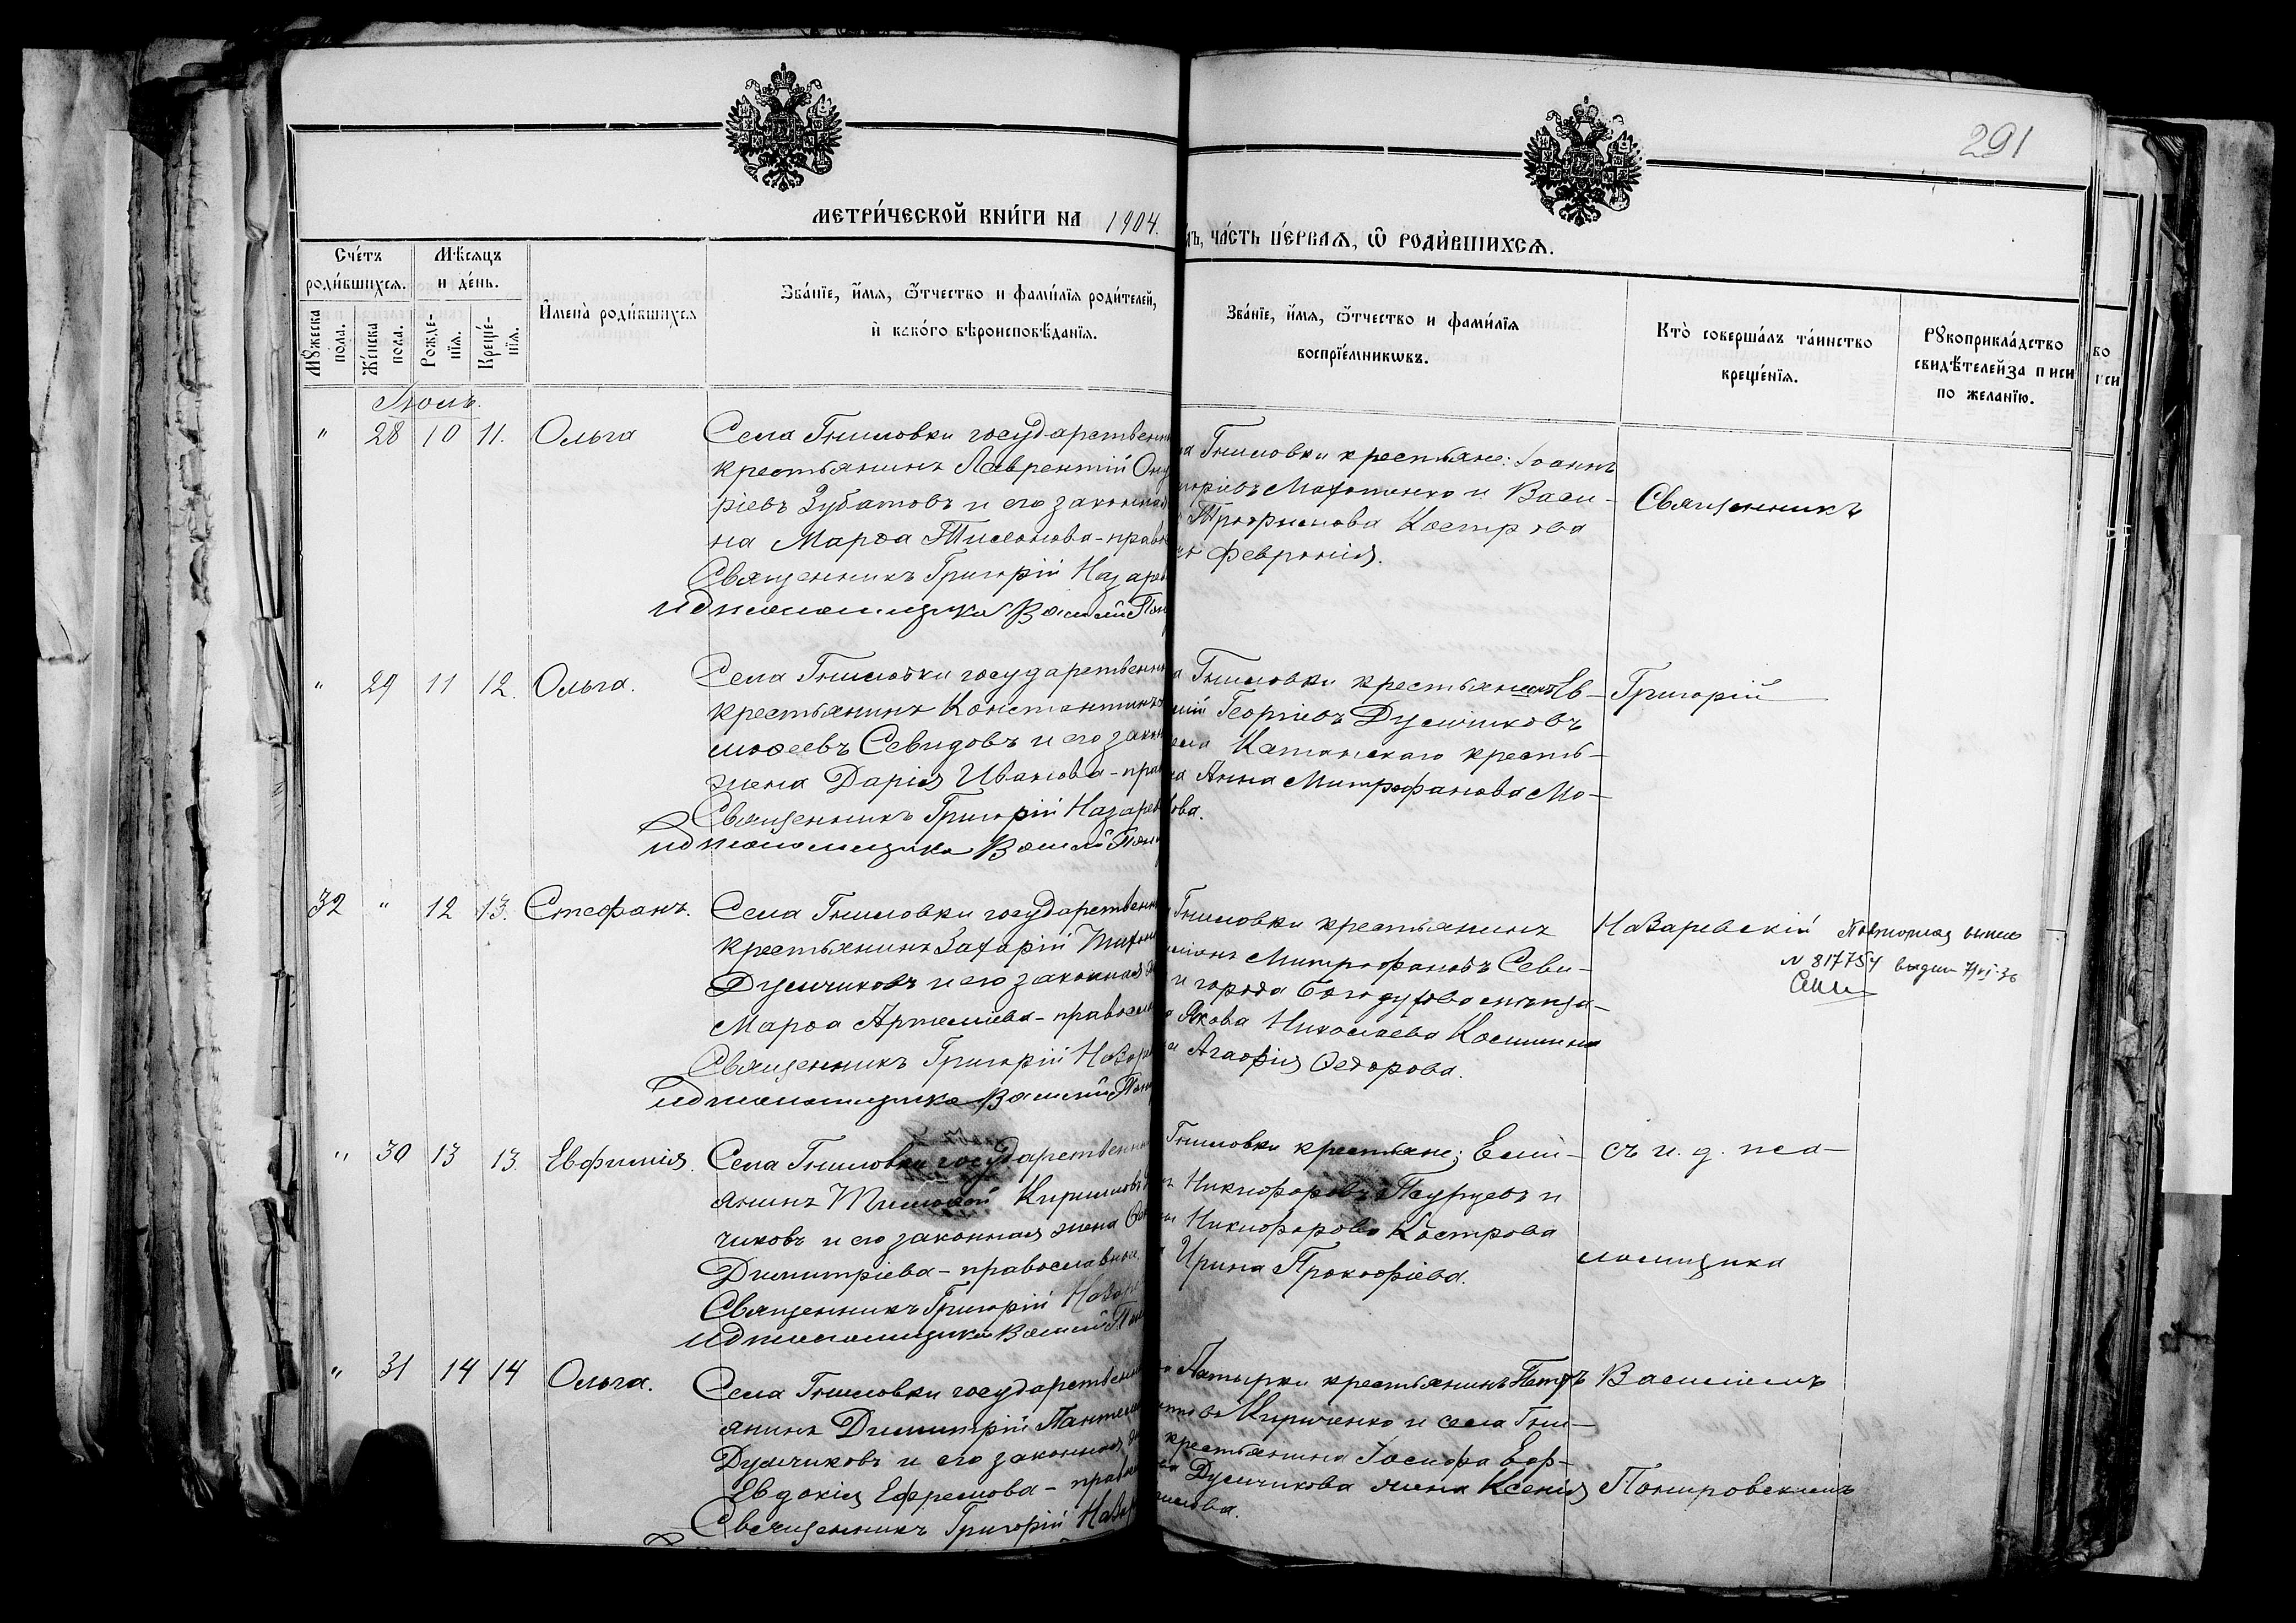 291
МЕТРИ́ЧЕСКОЙ КНИ́ГИ НА 1904.
ЧА́СТЬ ПЕ́РВАѦ, Ѽ РОДИ́ВШИХСѦ.
Сче́тъ роди́вшихсѧ.
Мꙋжеска пола.
Же́нска пола.
Мѣ́сѧцъ и де́нь.
Рожде-нїѧ.
Креще́-нїѧ.
И҆мена̀ роди́вшихсѧ
Зва́нїе, и҆́мѧ, ѻ҆́тчество и фами́лїѧ роди́телей,
и҆ како́го вѣроисповѣ́данїѧ.
Зва́нїе, и҆́мѧ, ѻ҆́тчество и фами́лїѧ
воспрїе́мникѡвъ.
Кто̀ соверша́лъ та́инство
креще́нїѧ.
Рꙋкоприкла́дство
свидѣ́телей записи
по жела́нїю.
Іюль.
" 28 10 11. Ольга
Села Гниловки государственн
крестьянинъ Лаврентій Ону
ріевъ Зубатовъ и его законная
на Марѳа Тихонова - право
Священникъ Григорій Назарев
И д псаломщика Василій Пон
Гниловки крестьяне: Іоаннъ
и Васи-
Трофимова Кострова
Февронія.
Священникъ
" 29 11 12. Ольга.
Села Гниловки государственн
крестьянинъ Константинъ
моѳеевъ Севидовъ и его закон
жена Дарія Иванова - прав
Священникъ Григорій Назарев
И д псаломщика Василій Пон
Гниловки крестьянинъ Ев-
Георгіевъ Думчиковъ
Катанскаго кресть-
Анна Митрофанова Мо-
ова.
Григорій
32 " 12 13. Стефанъ.
Села Гниловки государственн
крестьянинъ Захарій Тихон
Думчиковъ и его законная
Марѳа Артемиева - правосла
Священникъ Григорій Назар
И д псаломщика Василій Пон
Гниловки крестьянинъ
Митрофановъ Севи-
и города Богодухова мѣща-
Якова Николаева
Агаѳія Ѳедорова.
Назаревскій
N 817754
" 30 13 13. Евфимія.
Села Гниловки государственн
янинъ Тимоѳей Кирилловъ
чиковъ и его законная жена
Димитріева - православны
Священникъ Григорій Назар
И д псаломщика Василій Пон
Гниловки крестьяне; Емі-
Никифоровъ и
Никифорова Кострова
Ирина Прокофіева.
съ и. д. пса-
ломщика
" 31 14 14 Ольга.
Села Гниловки государственн
янинъ Димитрій Пантеле
Думчиковъ и его законная
Евдокія Ефремова - правос
Священникъ Григорій Наза
крестьянинъ Петръ
Кириченко и села Гни-
крестьянина Іосифа Еф-
Думчикова жена Ксенія
Василіемъ
Понировскимъ